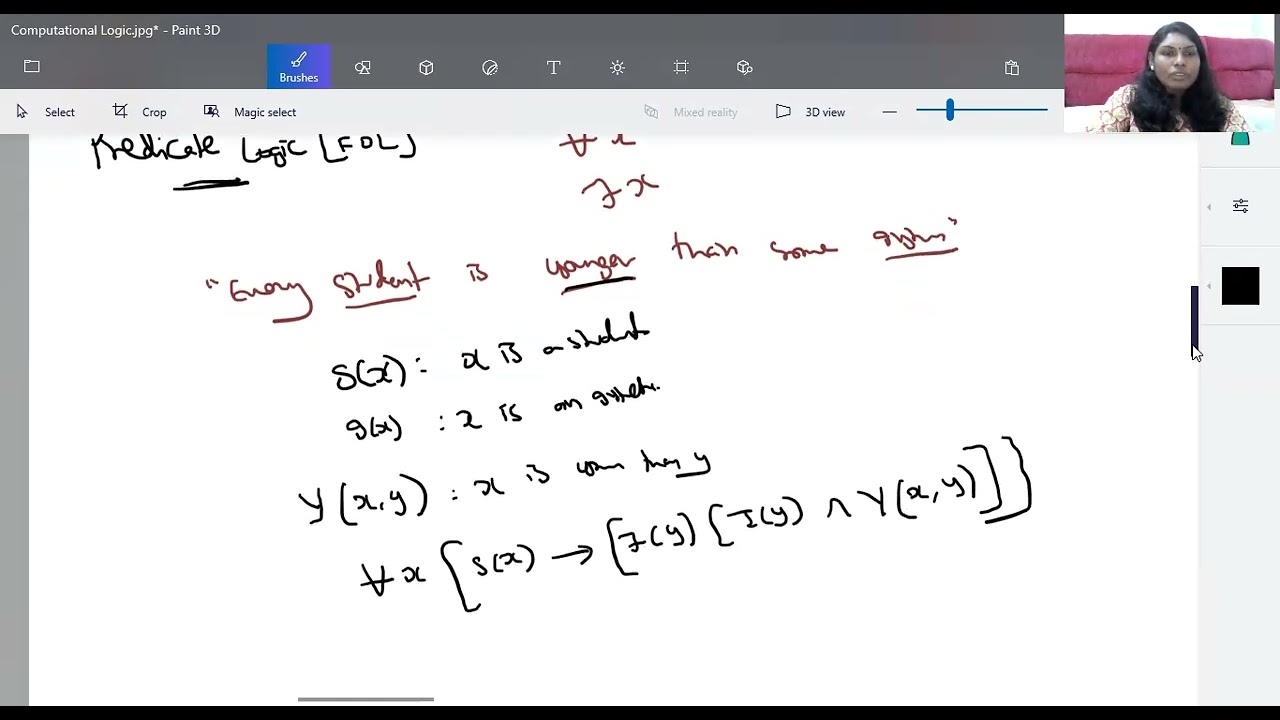 Computational Logic.jpg* - Paint 3D
Brushes
Select Crop Magic select Mixed reality 3D view
Predicate Logic [FOL] ∀x
∃x
"Every student is younger than some
S(x) : x is a student
g(x) : x is an
Y(x,y) : x is than y
∀x [S(x) → [∃(y) [I(y) ∧ Y(x,y)]]]